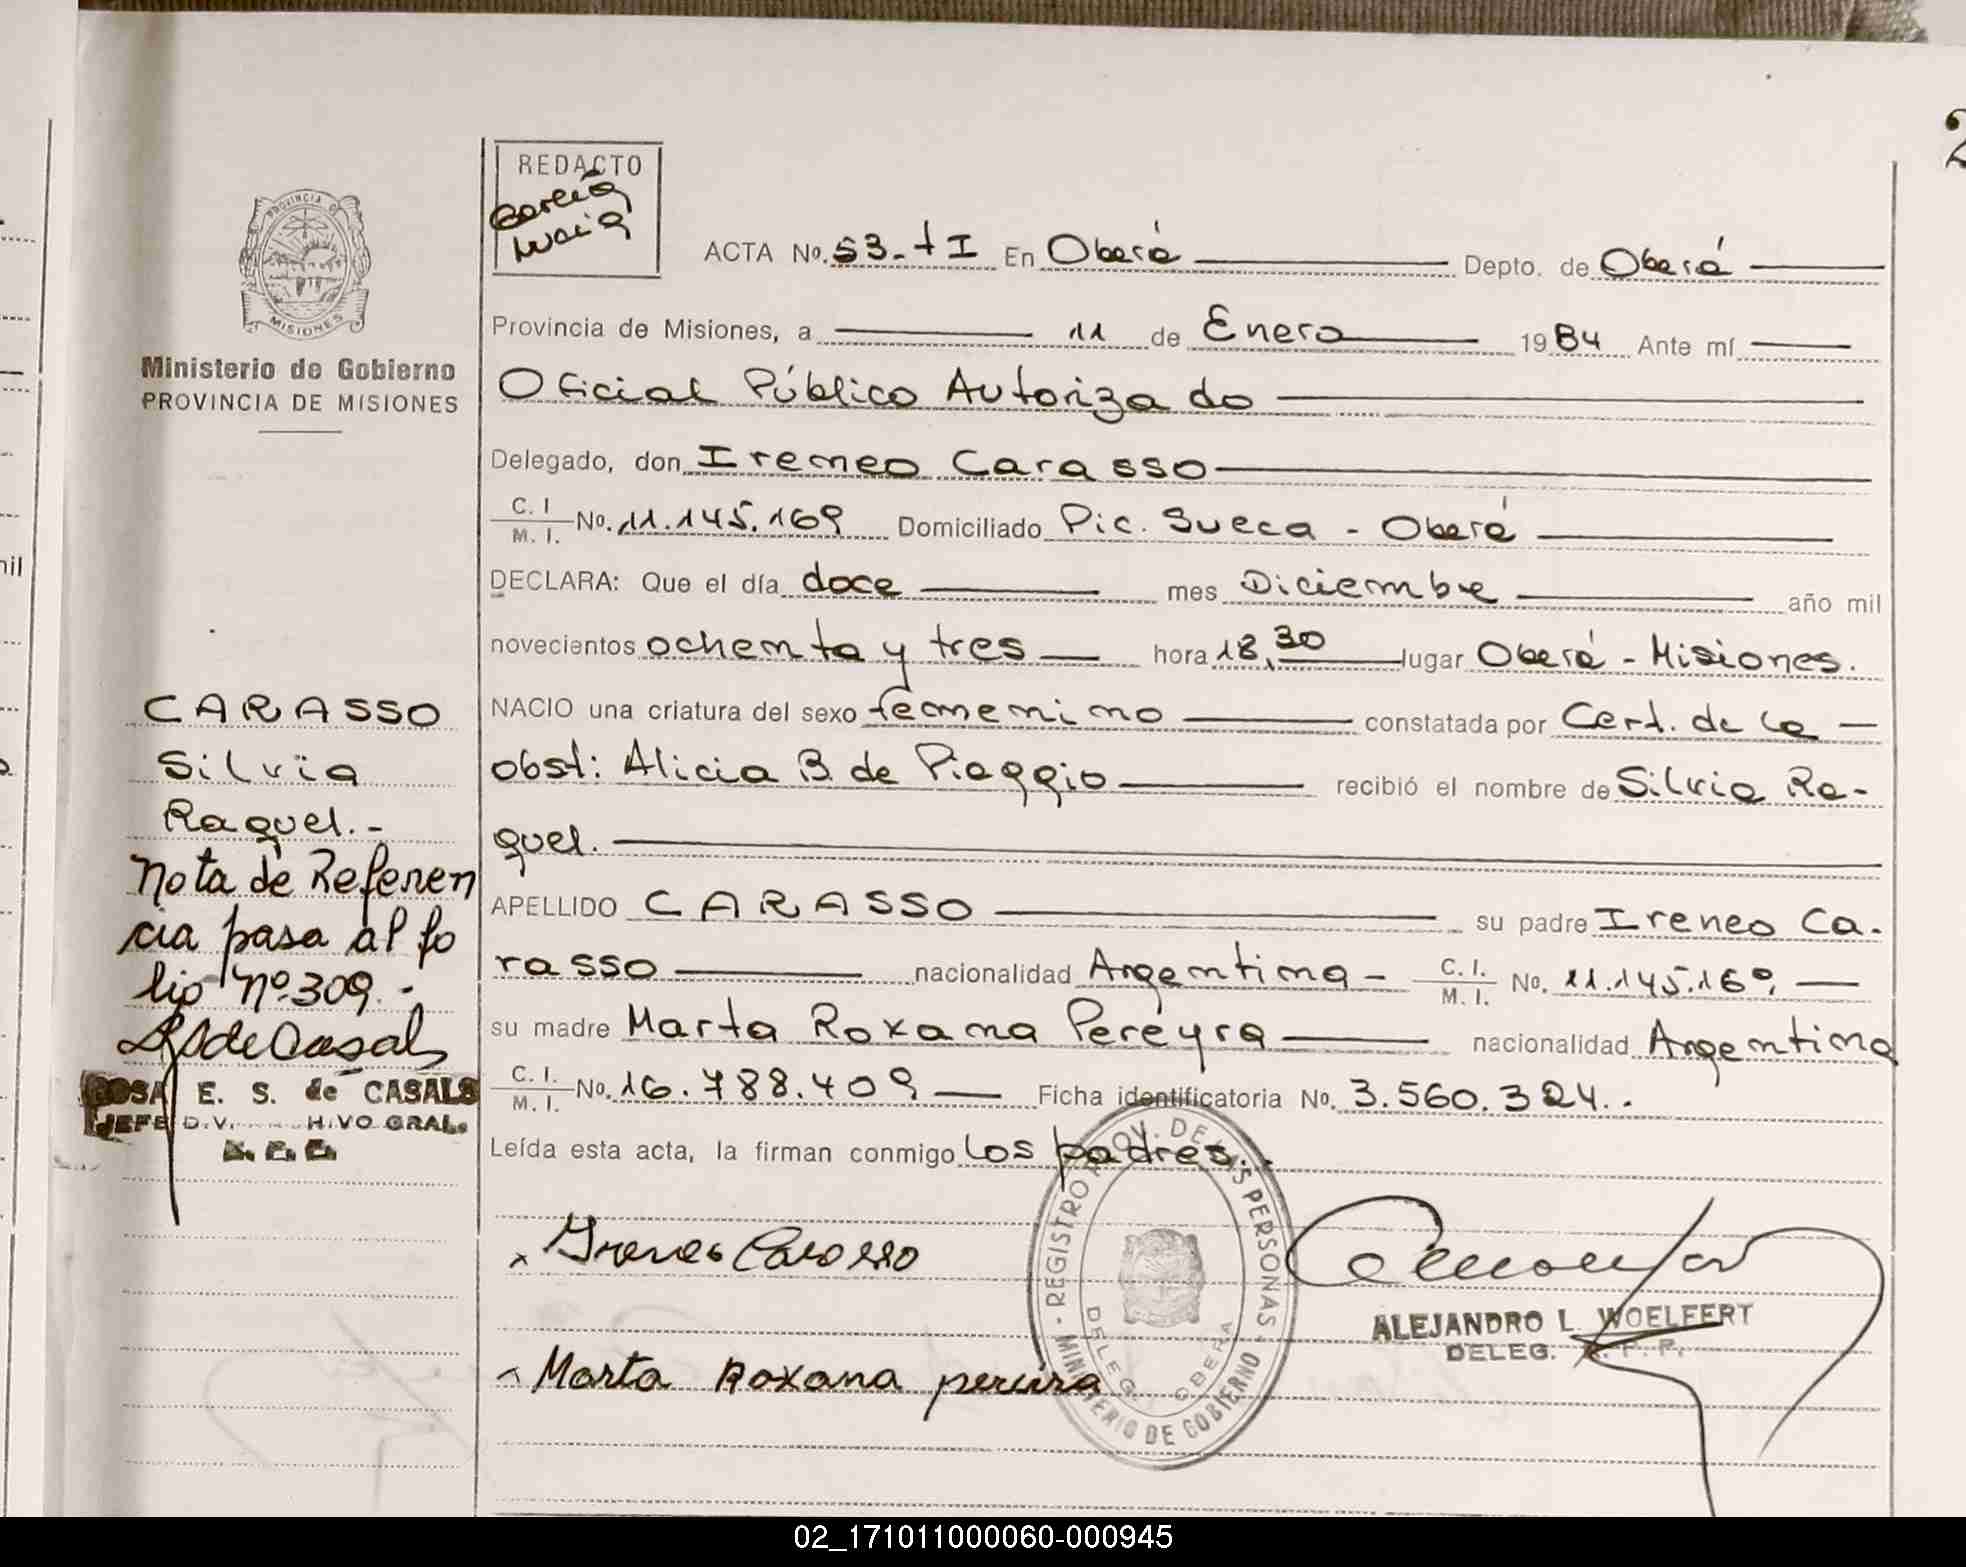 2
REDACTO
García
Lucia
PROVINCIA D
MISIONES
Ministerio de Gobierno
PROVINCIA DE MISIONES
ACTA No. 53-tI En Oberá Depto. de Oberá
Provincia de Misiones, a 11 de Enero 1984 Ante mí
Oficial Público Autorizado
Delegado, don Ireneo Carasso
C. I. / M. I. No. 11.145.169 Domiciliado Pic. Sueca - Oberá
DECLARA: Que el día doce mes Diciembre año mil
novecientos ochenta y tres hora 18,30 lugar Oberá - Misiones.
NACIO una criatura del sexo femenino constatada por Cert. de la
obst: Alicia B. de Piaggio recibió el nombre de Silvia Ra-
quel.
APELLIDO CARASSO su padre Ireneo Ca-
rasso nacionalidad Argentina - C. I. / M. I. No. 11.145.169.
su madre Marta Roxana Pereyra nacionalidad Argentina
C. I. / M. I. No. 16.788.409 Ficha identificatoria No. 3.560.324..
Leída esta acta, la firman conmigo los padres..
Ireneo Carasso
Marta Roxana pereira
ALEJANDRO L. WOELFERT
DELEG. R. P. P.
REGISTRO PROV. DE LAS PERSONAS
MINISTERIO DE GOBIERNO
DELEG. OBERA
CARASSO
Silvia
Raquel.-
Nota de Referen
cia pasa al fo
lio Nº 309.-
RSdeCasals
ROSA E. S. de CASALS
JEFE DIV. HIVO GRAL.
nil
02_171011000060-000945